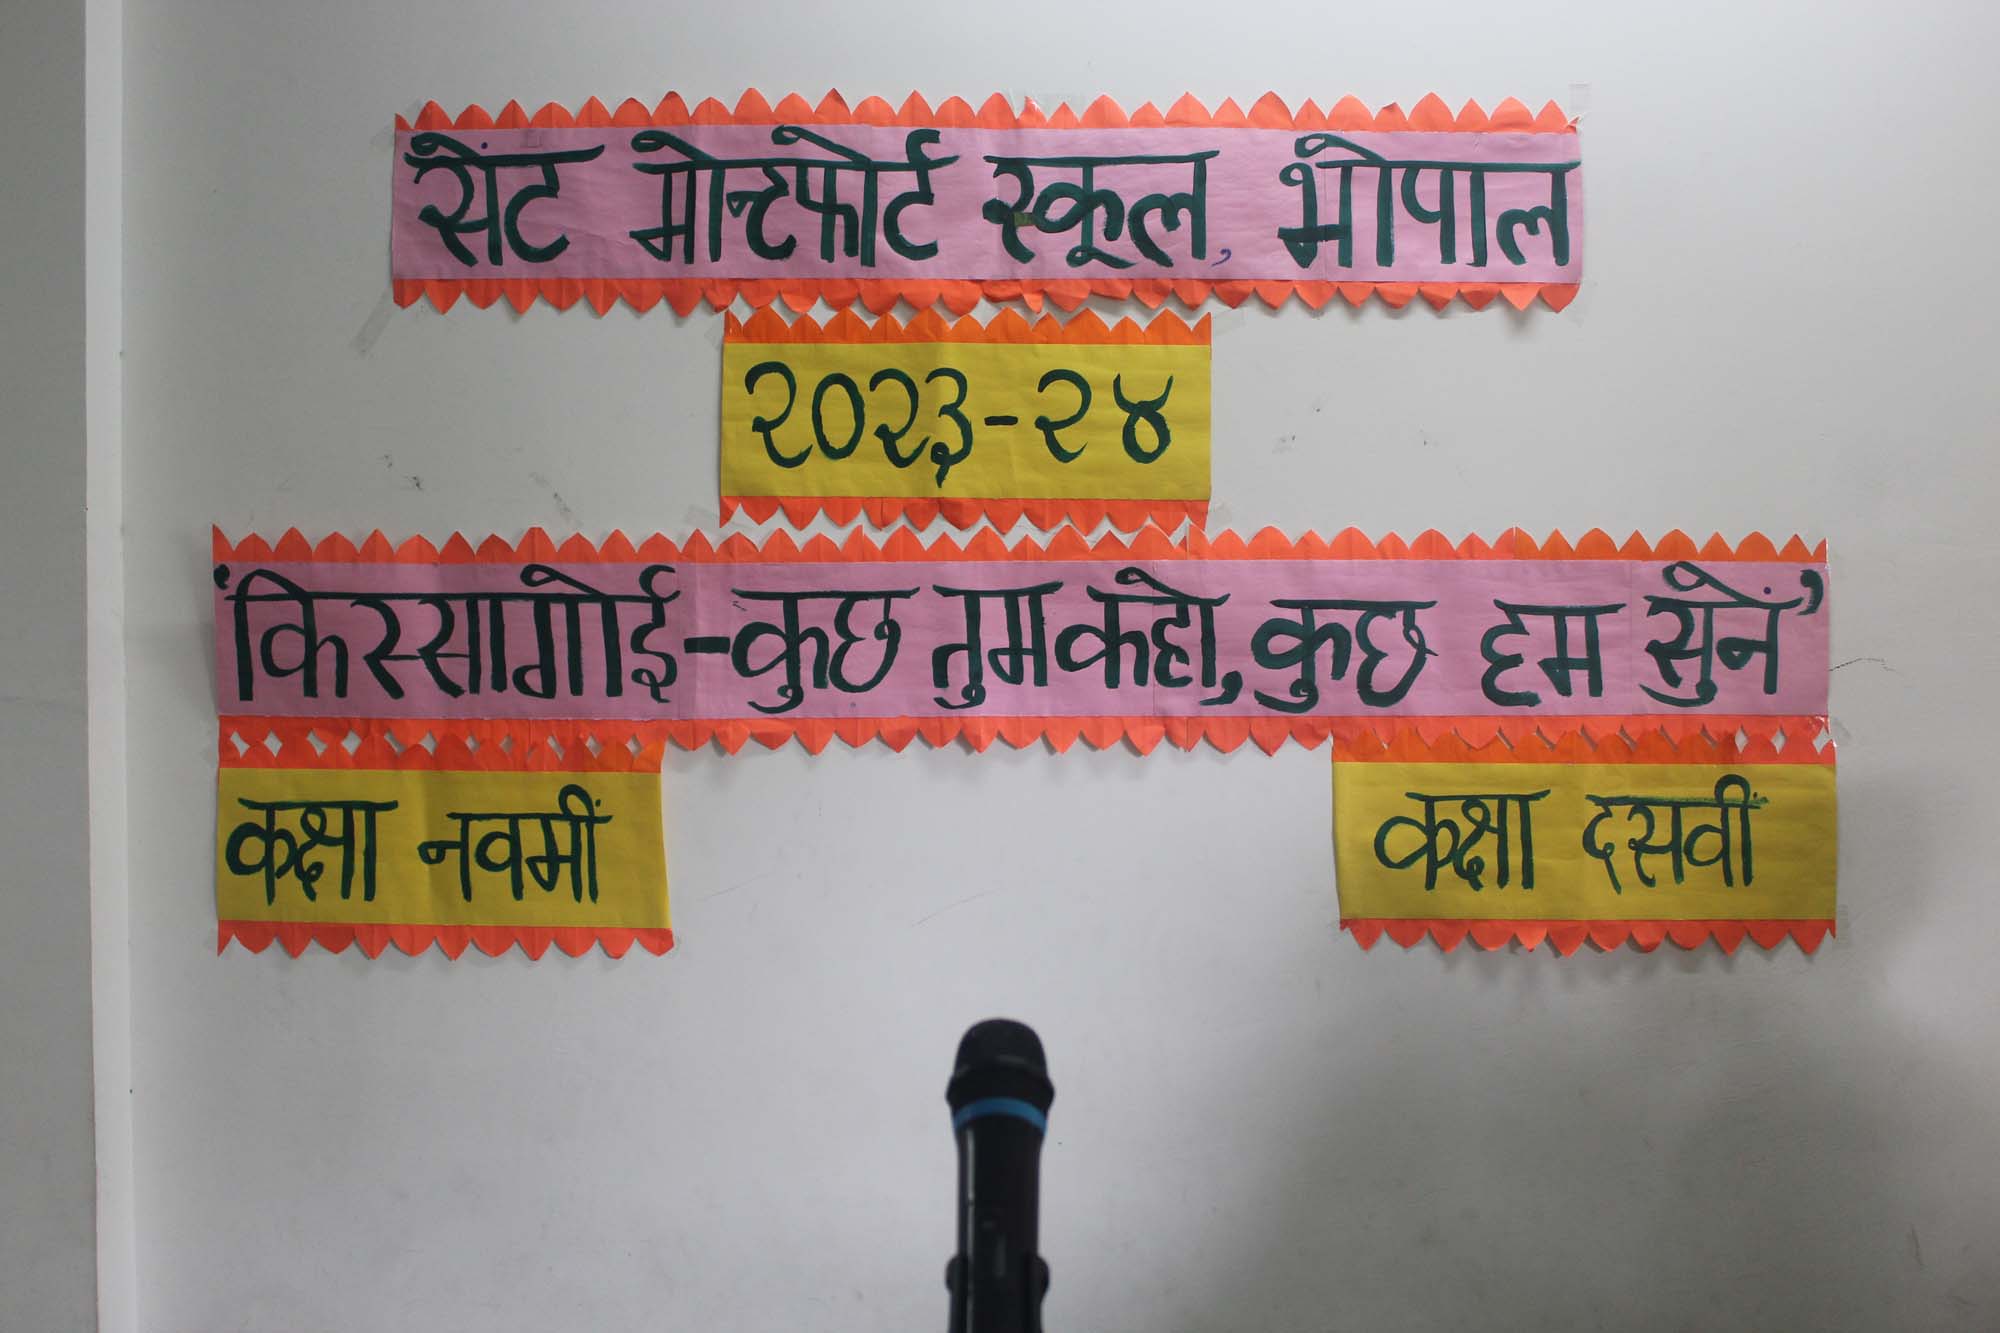 सेंट मोन्टफोर्ट स्कूल, भोपाल
२०२३-२४
'किस्सागोई-कुछ तुम कहो, कुछ हम सुनें'
कक्षा नवमीं
कक्षा दसवीं